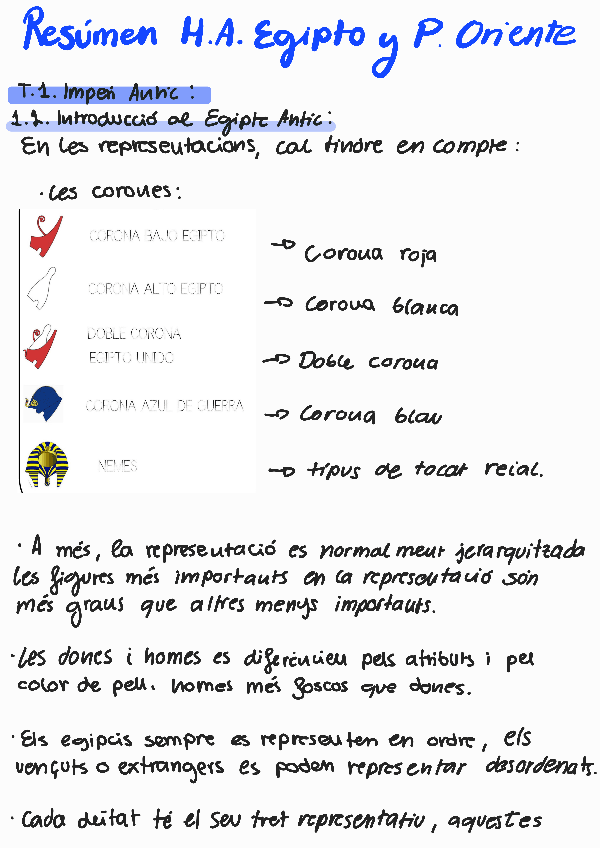 Resúmen H.A. Egipto y P. Oriente
T.1. Imperi Antic:
1.1. Introducció al Egipte Antic:
En les representacions, cal tindre en compte:
· Les corones:
CORONA BAJO EGIPTO → Corona roja
CORONA ALTO EGIPTO → Corona blanca
DOBLE CORONA
EGIPTO UNIDO → Doble corona
CORONA AZUL DE GUERRA → Corona blau
NEMES → tipus de tocat reial.
· A més, la representació es normalment jerarquitzada
les figures més importants en la representació són
més grans que altres menys importants.
· Les dones i homes es diferèncien pels atributs i pel
color de pell. homes més foscos que dones.
· Els egipcis sempre es representen en ordre, els
vençuts o extrangers es poden representar desordenats.
· Cada deïtat té el seu tret representatiu, aquestes